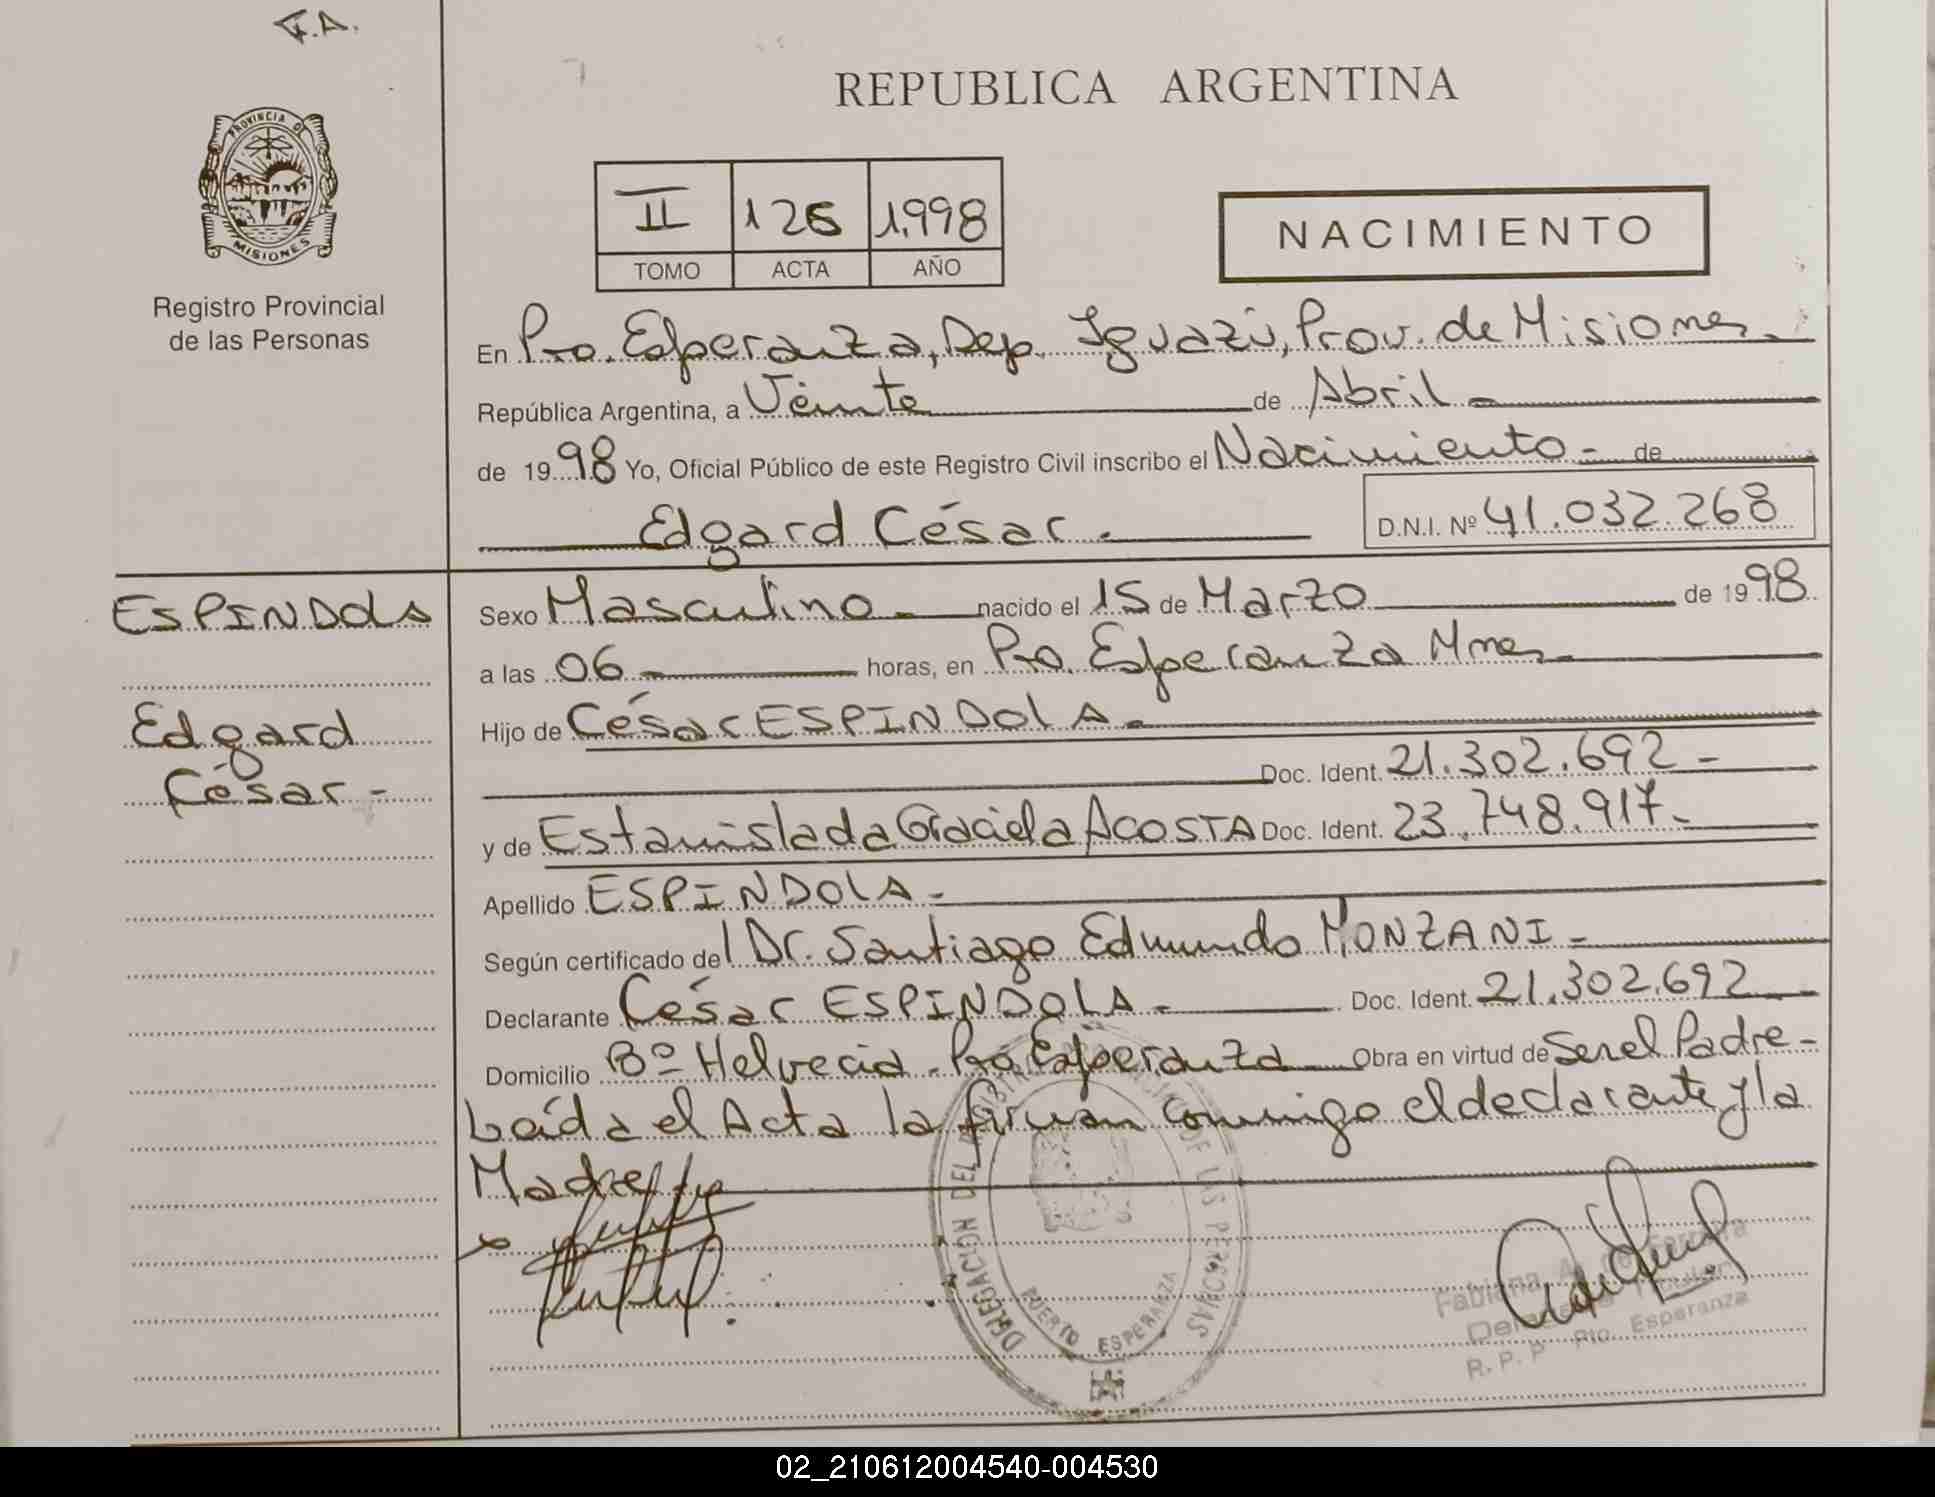 F.A.
PROVINCIA DE
MISIONES
Registro Provincial
de las Personas
REPUBLICA ARGENTINA
II 126 1,998
TOMO ACTA AÑO
NACIMIENTO
En Pto. Esperanza, Dep. Iguazú, Prov. de Misiones.
República Argentina, a Veinte de Abril
de 1998 Yo, Oficial Público de este Registro Civil inscribo el Nacimiento - de
Edgard César.
D.N.I. Nº 41.032.268
ESPINDOLA
Edgard
César -
Sexo Masculino nacido el 15 de Marzo de 1998
a las 06 horas, en Pto. Esperanza Mnes
Hijo de César ESPINDOLA -
Doc. Ident. 21.302.692 -
y de Estanislada Graciela ACOSTA Doc. Ident. 23.748.917 -
Apellido ESPINDOLA -
Según certificado del Dr. Santiago Edmundo MONZANI -
Declarante César ESPINDOLA - Doc. Ident. 21.302.692
Domicilio Bº Helvecia - Pto Esperanza Obra en virtud de Ser el Padre -
Leída el Acta la firman conmigo el declarante y la
Madre
DELEGACION DEL REGISTRO DE LAS PERSONAS
PUERTO ESPERANZA
Fabiana
R. P. P. Pto. Esperanza
02_210612004540-004530